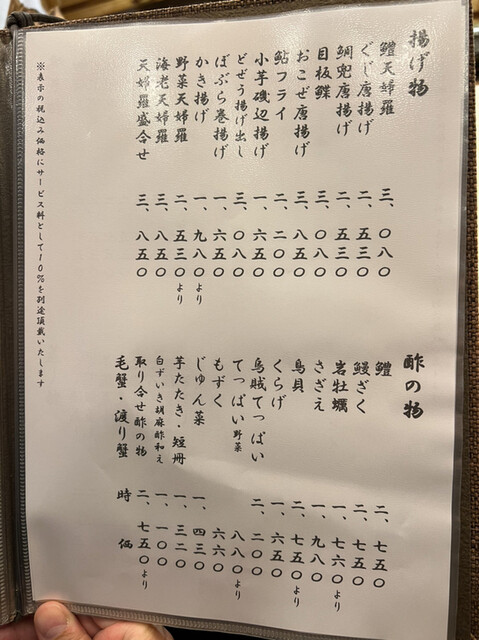 揚げ物
鱧天婦羅 三、〇八〇
ぐじ唐揚げ 二、五三〇
鯛兜唐揚げ 二、五三〇
目板鰈 三、〇八〇
おこぜ唐揚げ 三、八五〇
鮎フライ 二、二〇〇
小芋磯辺揚げ 一、六五〇
どぜう揚げ出し 三、〇八〇
ぼぶら巻揚げ 一、六五〇
かき揚げ 一、九八〇より
野菜天婦羅 二、五三〇より
海老天婦羅 三、八五〇
天婦羅盛合せ 三、八五〇
酢の物
鱧 二、七五〇
鰻ざく 二、七五〇
岩牡蠣 一、七六〇より
さざえ 一、九八〇
鳥貝 二、七五〇より
くらげ 一、六五〇
烏賊てっぱい 二、二〇〇
てっぱい野菜 八八〇より
もずく 六六〇
じゅん菜 一、四三〇
芋たたき・短冊 一、三二〇
白ずいき胡麻酢和え 一、一〇〇
取り合せ酢の物 二、七五〇より
毛蟹・渡り蟹 時価
※表示の税込み価格にサービス料として10%を別途頂戴いたします